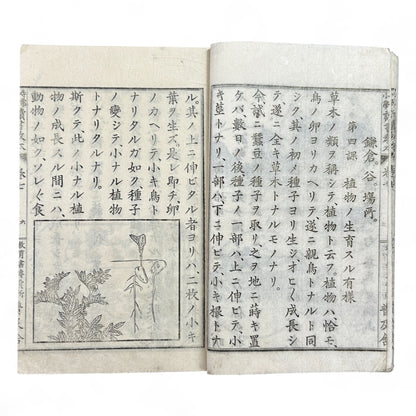 鎌倉、谷、場所。
第四課 植物ノ生育スル有様
草木ノ類ヲ稱シテ植物ト云フ、植物ハ、恰モ、
鳥ノ卵ヨリカヘリテ遂ニ親鳥トナルト同
シク、其ノ初メ種子ヨリ生シ、オヒオヒ成長シ
テ遂ニ全キ草木トナルモノナリ。
今試ニ蠶豆ノ種子ヲ取リ、之ヲ地ニ蒔キ置
ケバ、數日ノ後種子ノ一部ハ、上ニ伸ビテ、小
キ莖トナリ、一部ハ、下ニ伸ビテ、小キ根トナ
ル。其ノ上ニ伸ビタル者ヨリハ、二枚ノ小キ
葉ヲ生ズ、是レ即チ卵
ノカヘリテ、小キ鳥ト
ナリタルガ如ク、種子
ノ變シテ、小ナル植物
トナリタルナリ。
斯クテ此ノ小ナル植
物ノ成長スル間ニハ、
動物ノ如ク、ソレゾレ食
讀書教本 卷七